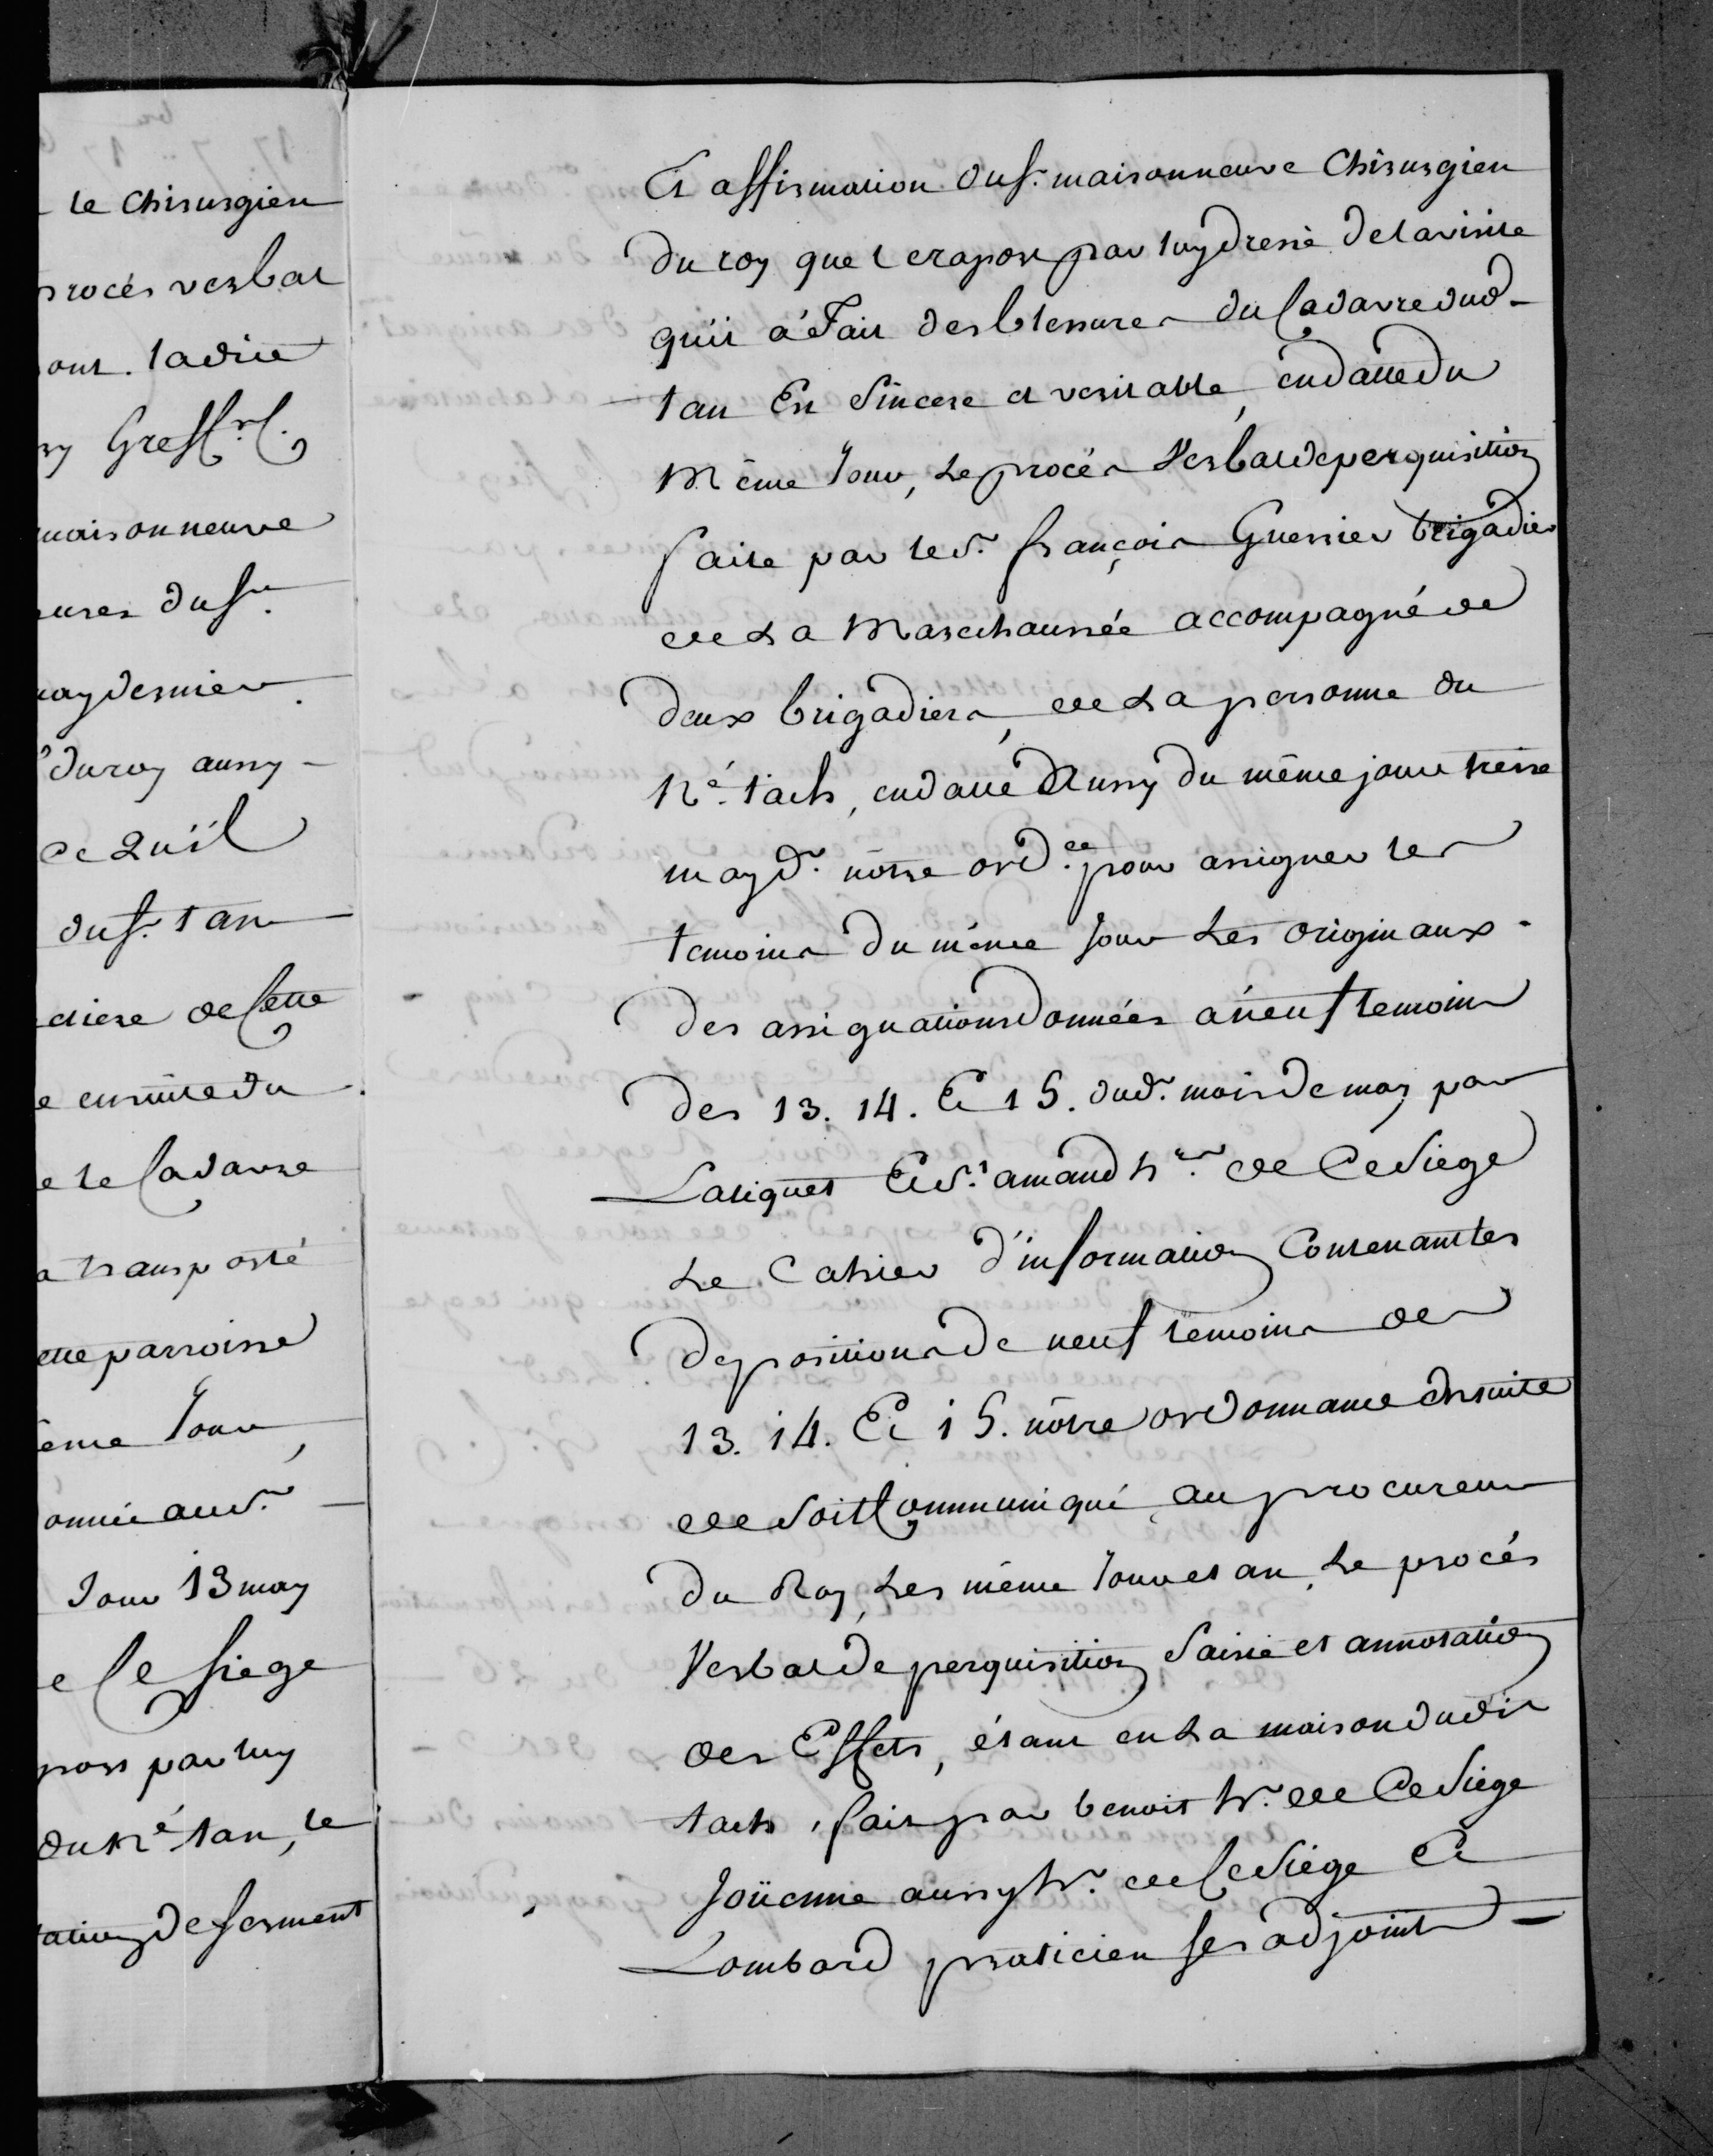 le chirurgien
procés verbal
ladite
Greff.
maisonneuve
du Sr.
may dernier
du roy aussy
ce quïl
du Sr. tan
de Cette
ensuite du
le Cadavre
a transporté
ette parroisse
ême Jour
onnée aud.
Jour 13 may
Ce siege
par luy
du né. tan, le
de serment
Et affirmation du Sr. maisonneuve Chirurgien
du roy que le raport par luy dressé de la visite
qu'il à Fait des blessures du Cadavre dud
tan Est Sincere et veritable, en datte du
Même Jour, Le procés Verbal de perquisition
faite par le Sr. françois Guerrier brigadier
de La Marechaussée accompagné de
deux brigadiers, de La personne du
né. tach, en datte Aussy du même jour treize
may dr. nôtre ord.ce pour assigner les
temoins du même Jour Les originaux
des assignations données à neuf temoins
des 13. 14. Et 15. dud. mois de may par
Latiques Et St. amand hrs. de Ce Siege
Le Cahier d'information Contenant les
depositions de neuf temoins des
13. 14. Et 15. nôtre ordonnance Ensuite
de Soit Communiqué au procureur
du Roy, Les même Jour et an, Le procés
Verbal de perquisition Saisie et annotation
des Effets, étant en La maison dudit
tach, fait par benoit hr. de Ce Siege
Joüenne aussy hr. de Ce Siege Et
Lombard praticien ses adjoints